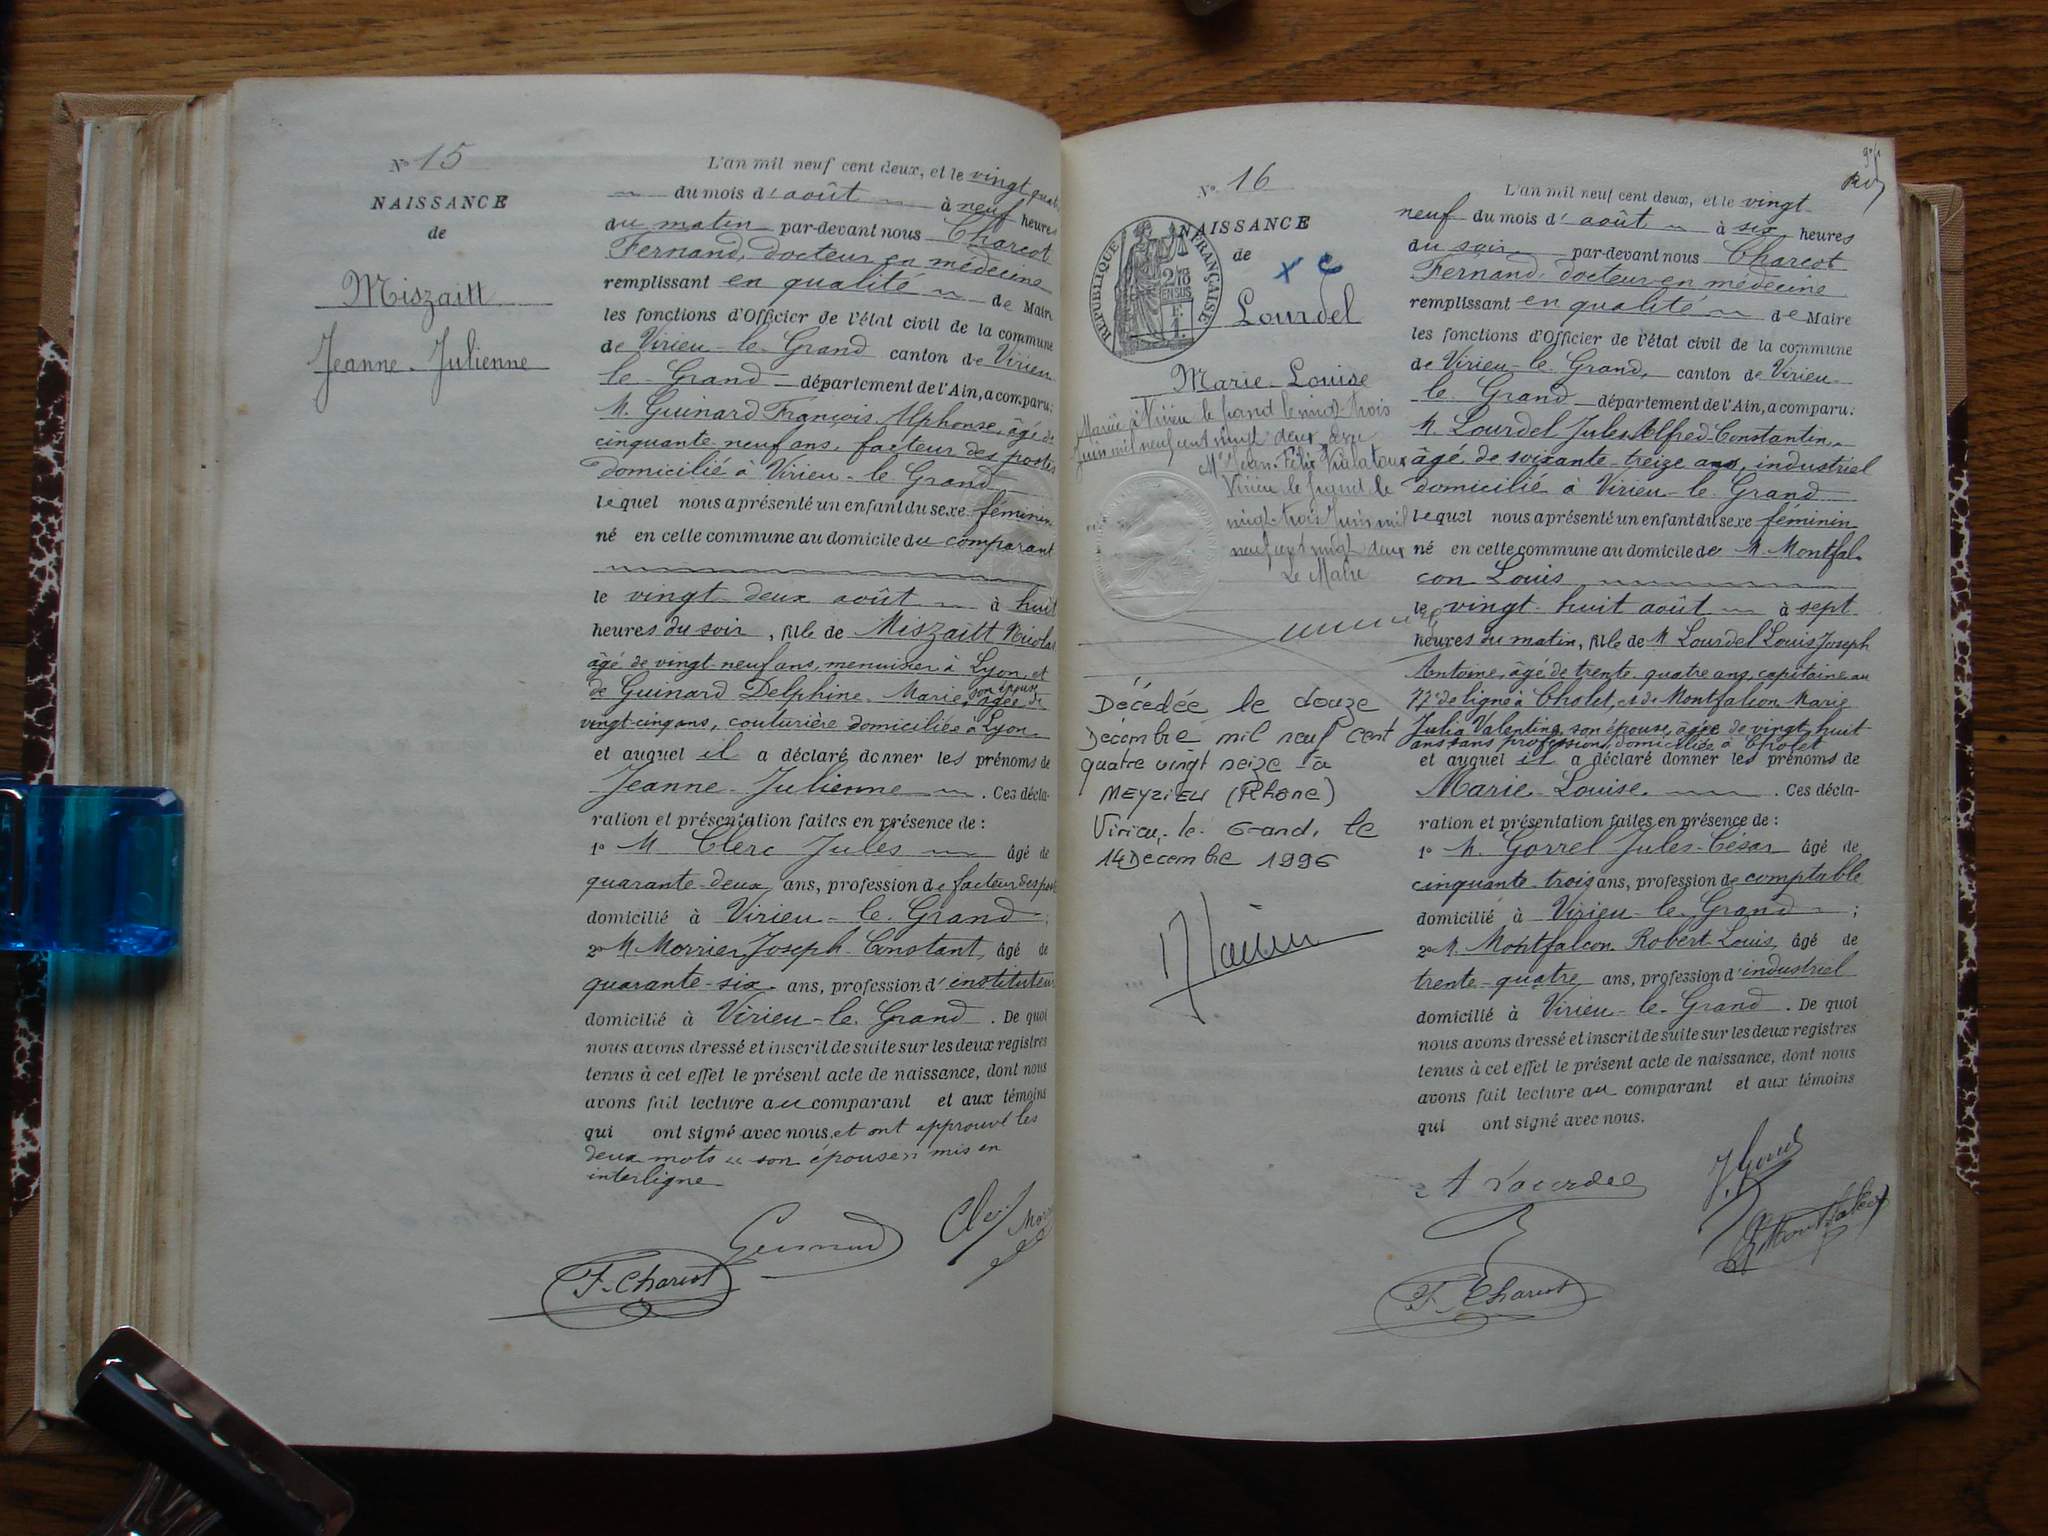 Nº 15
NAISSANCE
de
Miszaitt
Jeanne-Julienne
L'an mil neuf cent deux, et le vingt quatre
du mois d'août à neuf heures
du matin par-devant nous Charcot
Fernand, docteur en médecine
remplissant en qualité de Maire
les fonctions d'Officier de l'état civil de la commune
de Virieu-le-Grand canton de Virieu
le-Grand département de l'Ain, a comparu:
M. Guinard François Alphonse, âgé de
cinquante-neuf ans, facteur des postes
domicilié à Virieu-le-Grand
lequel nous a présenté un enfant du sexe féminin
né en cette commune au domicile du comparant
le vingt-deux août à huit
heures du soir, fille de Miszaitt Nicolas
âgé de vingt-neuf ans, menuisier à Lyon et
de Guinard Delphine-Marie, son épouse âgée de
vingt-cinq ans, couturière domiciliée à Lyon
et auquel il a déclaré donner les prénoms de
Jeanne-Julienne. Ces décla-
ration et présentation faites en présence de:
1º M. Clerc Jules âgé de
quarante-deux ans, profession de facteur des postes
domicilié à Virieu-le-Grand;
2º M. Morrier Joseph-Constant, âgé de
quarante-six ans, profession d'instituteur
domicilié à Virieu-le-Grand. De quoi
nous avons dressé et inscrit de suite sur les deux registres
tenus à cet effet le présent acte de naissance, dont nous
avons fait lecture au comparant et aux témoins
qui ont signé avec nous, et ont approuvé les
deux mots "son épouse" mis en
interligne
Guinard
F. Charcot
Nº 16
NAISSANCE
de
RÉPUBLIQUE FRANÇAISE
Lourdel
Marie-Louise
Mariée à Virieu le Grand le vingt-trois
Juin mil neuf cent vingt deux avec
Mr Jean-Félix Vialatoux
Virieu le Grand le
vingt-trois Juin mil
neuf cent vingt deux
Le Maire
Décédée le douze
Décembre mil neuf cent
quatre vingt seize à
MEYZIEU (Rhône)
Virieu-le-Grand, le
14 Décembre 1996
L'an mil neuf cent deux, et le vingt-
neuf du mois d'août à six heures
du soir par-devant nous Charcot
Fernand, docteur en médecine
remplissant en qualité de Maire
les fonctions d'Officier de l'état civil de la commune
de Virieu-le-Grand, canton de Virieu-
le-Grand département de l'Ain, a comparu:
M. Lourdel Jules Alfred-Constantin
âgé de soixante-treize ans, industriel
domicilié à Virieu-le-Grand
lequel nous a présenté un enfant du sexe féminin
né en cette commune au domicile de M. Montfal-
con Louis
le vingt-huit août à sept
heures du matin, fille de M. Lourdel Louis Joseph
Antoine, âgé de trente-quatre ans, capitaine au
77e de ligne à Cholet, et de Montfalcon Marie
Julia Valentine, son épouse, âgée de vingt-huit
ans sans profession, domiciliée à Cholet
et auquel il a déclaré donner les prénoms de
Marie-Louise. Ces décla-
ration et présentation faites en présence de:
1º M. Gorrel Jules-César âgé de
cinquante-trois ans, profession de comptable
domicilié à Virieu-le-Grand;
2º M. Montfalcon Robert-Louis, âgé de
trente-quatre ans, profession d'industriel
domicilié à Virieu-le-Grand. De quoi
nous avons dressé et inscrit de suite sur les deux registres
tenus à cet effet le présent acte de naissance, dont nous
avons fait lecture au comparant et aux témoins
qui ont signé avec nous.
A Lourdel
F. Charcot